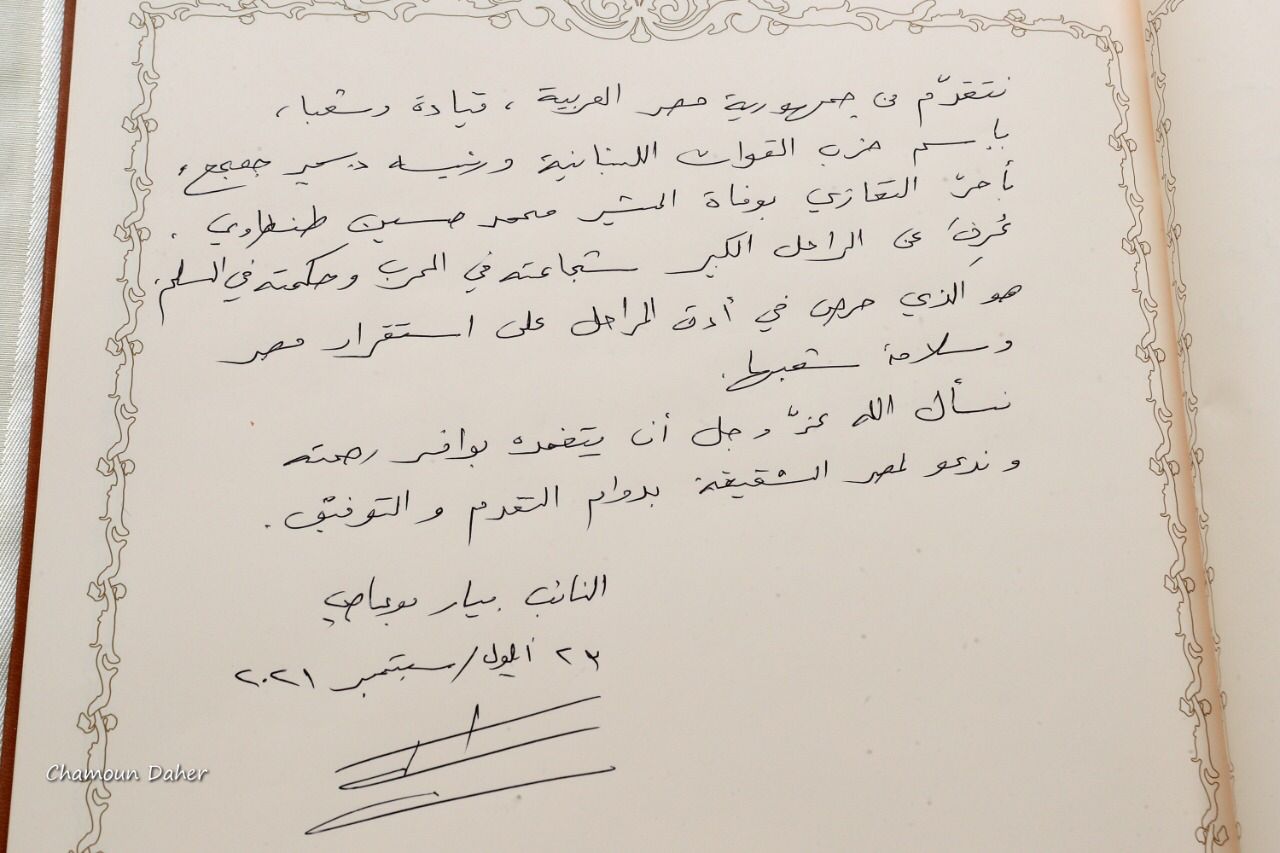 نتقدّم من جمهورية مصر العربية ، قيادة وشعبا ،
بإسم حزب القوات اللبنانية ورئيسه د. سمير جعجع ،
بأحرّ التعازي بوفاة المشير محمد حسين طنطاوي .
عُرِفَ عن الراحل الكبير شجاعته في الحرب وحكمته في السلم .
هو الذي حرص في أدق المراحل على استقرار مصر
وسلامة شعبها .
نسأل الله عزّ وجل أن يتغمده بوافر رحمته
وندعو لمصر الشقيقة بدوام التقدم والتوفيق .
النائب بيار بوعاصي
٢٣ أيلول/سبتمبر ٢٠٢١
Chamoun Daher